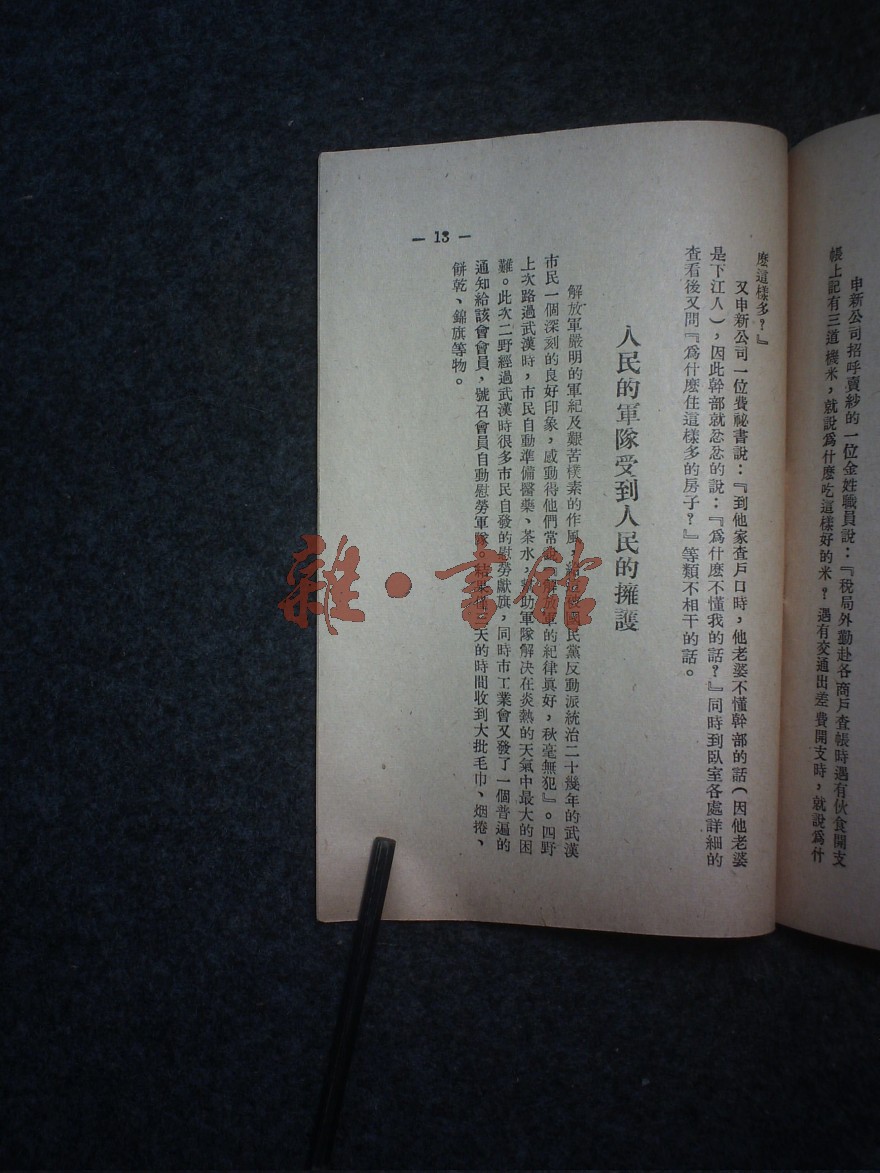 申新公司招呼賣紗的一位金姓職員說：『稅局外勤赴各商戶查帳時遇有伙食開支
帳上記有三道機米，就說爲什麽吃這樣好的米？遇有交通出差費開支時，就說爲什
麽這樣多？』
又申新公司一位費祕書說：『到他家查戶口時，他老婆不懂幹部的話（因他老婆
是下江人），因此幹部就忿忿的說：『爲什麽不懂我的話？』同時到臥室各處詳細的
查看後又問『爲什麽住這樣多的房子？』等類不相干的話。
人民的軍隊受到人民的擁護
解放軍嚴明的軍紀及艱苦樸素的作風，給這被國民黨反動派統治二十幾年的武漢
市民一個深刻的良好印象，感動得他們常說『解放軍的紀律眞好，秋毫無犯』。四野
上次路過武漢時，市民自動準備醫藥、茶水，幫助軍隊解決在炎熱的天氣中最大的困
難。此次二野經過武漢時很多市民自發的慰勞獻旗，同時市工業會又發了一個普遍的
通知給該會會員，號召會員自動慰勞軍隊。結果僅三天的時間收到大批毛巾、烟捲、
餅乾、錦旗等物。
— 13 —
雜·書館